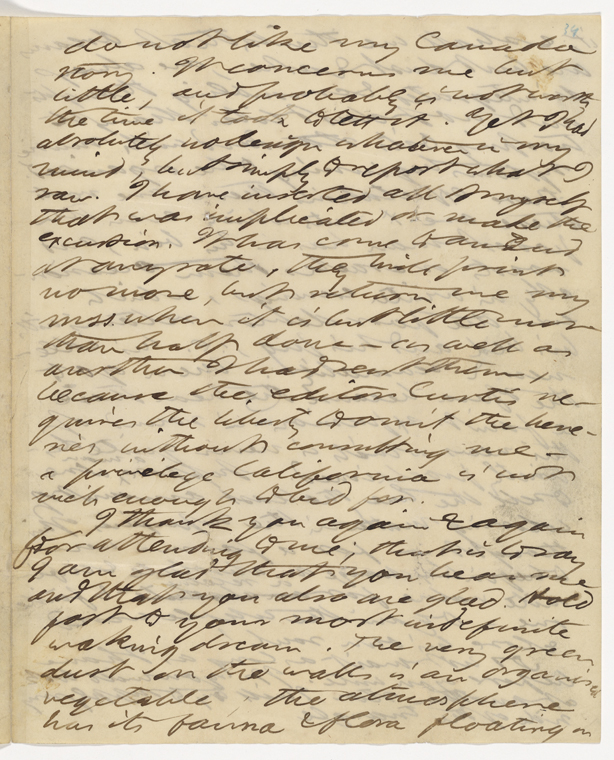 do not like my Canada
story. It concerns me but
little, and probably is not worth
the time it took to tell it. Yet I had
absolutely no design whatever in my
mind, but simply to report what I
saw. I have inserted all of myself
that was implicated or made the
excursion. It has come to an end
at any rate, they will print
no more, but return me my
mss. when it is but little more
than half done — as well as
another I had sent them,
because the editor Curtis re-
quires the liberty to omit the here-
sies without consulting me —
a privelege California is not
rich enough to bid for.
I thank you again & again
for attending to me; that is to say
I am glad that you hear me
and that you also are glad. Hold
fast to your most indefinite
waking dream. The very green
dust on the walls is an organized
vegetable; the atmosphere
has its fauna & flora floating in